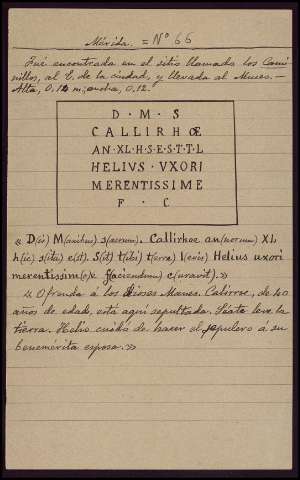 Mérida. = Nº 66
Fué encontrada en el sitio llamado los Cami-
nillos, al E. de la ciudad, y llevada al Museo. —
Alta, 0.12 m; ancha, 0.12.
D · M · S
CALLIRHŒ
AN·XL·H·S·E·S·T·T·L
HELIVS · VXORI
MERENTISSIME
F · C
« D(iis) M(anibus) s(acrum). Callirhoe an(norum) XL
h(ic) s(ita) e(st). S(it) t(ibi) t(erra) l(evis) Helius uxori
merentissim(a)e f(aciendum) c(uravit).»
« Ofrenda á los dioses Manes. Calirroe, de 40
años de edad, está aquí sepultada. Séate leve la
tierra. Helio cuidó de hacer el sepulcro á su
benemérita esposa.»